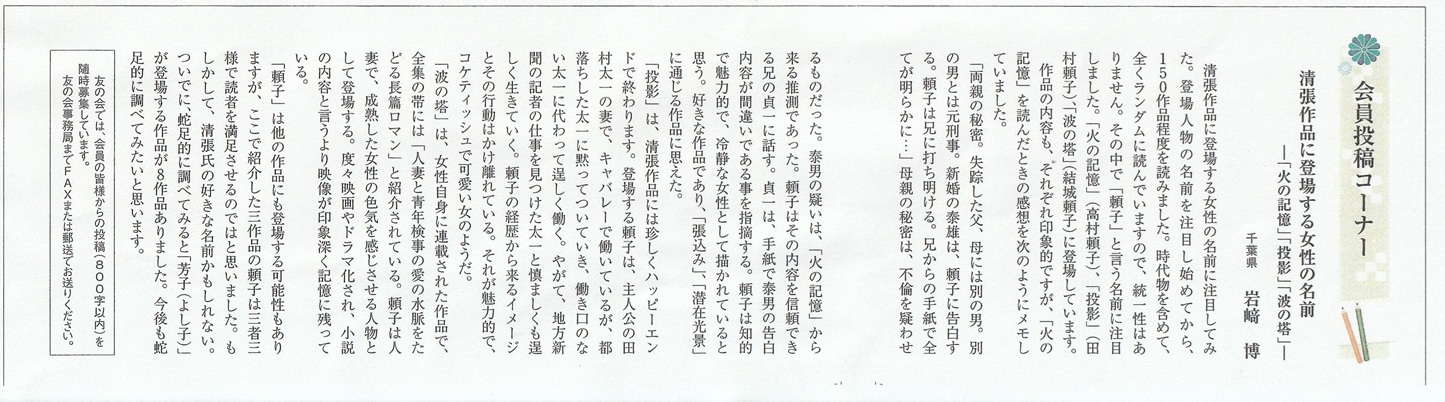 会員投稿コーナー
清張作品に登場する女性の名前
―「火の記憶」「投影」「波の塔」―
千葉県 岩﨑 博
清張作品に登場する女性の名前に注目してみ
た。登場人物の名前を注目し始めてから、
150作品程度を読みました。時代物を含めて、
全くランダムに読んでいますので、統一性はあ
りません。その中で「頼子」と言う名前に注目
しました。「火の記憶」(高村頼子)、「投影」(田
村頼子)、「波の塔」(結城頼子)に登場しています。
作品の内容も、それぞれ印象的ですが、「火の
記憶」を読んだときの感想を次のようにメモし
ていました。
「両親の秘密。失踪した父、母には別の男。別
の男とは元刑事。新婚の泰雄は、頼子に告白す
る。頼子は兄に打ち明ける。兄からの手紙で全
てが明らかに…」母親の秘密は、不倫を疑わせ
るものだった。泰男の疑いは、「火の記憶」から
来る推測であった。頼子はその内容を信頼でき
る兄の貞一に話す。貞一は、手紙で泰男の告白
内容が間違いである事を指摘する。頼子は知的
で魅力的で、冷静な女性として描かれていると
思う。好きな作品であり、「張込み」、「潜在光景」
に通じる作品に思えた。
「投影」は、清張作品には珍しくハッピーエン
ドで終わります。登場する頼子は、主人公の田
村太一の妻で、キャバレーで働いているが、都
落ちした太一に黙ってついていき、働き口のな
い太一に代わって逞しく働く。やがて、地方新
聞の記者の仕事を見つけた太一と慎ましくも逞
しく生きていく。頼子の経歴から来るイメージ
とその行動はかけ離れている。それが魅力的で、
コケティッシュで可愛い女のようだ。
「波の塔」は、女性自身に連載された作品で、
全集の帯には「人妻と青年検事の愛の水脈をた
どる長篇ロマン」と紹介されている。頼子は人
妻で、成熟した女性の色気を感じさせる人物と
して登場する。度々映画やドラマ化され、小説
の内容と言うより映像が印象深く記憶に残って
いる。
「頼子」は他の作品にも登場する可能性もあり
ますが、ここで紹介した三作品の頼子は三者三
様で読者を満足させるのではと思いました。も
しかして、清張氏の好きな名前かもしれない。
ついでに、蛇足的に調べてみると「芳子(よし子)」
が登場する作品が8作品ありました。今後も蛇
足的に調べてみたいと思います。
友の会では、会員の皆様からの投稿(800字以内)を
随時募集しています。
友の会事務局までFAXまたは郵送でお送りください。